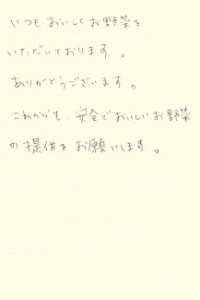 いつもおいしくお野菜を
いただいております。
ありがとうございます。
これからも、安全でおいしいお野菜
の提供をお願いします。